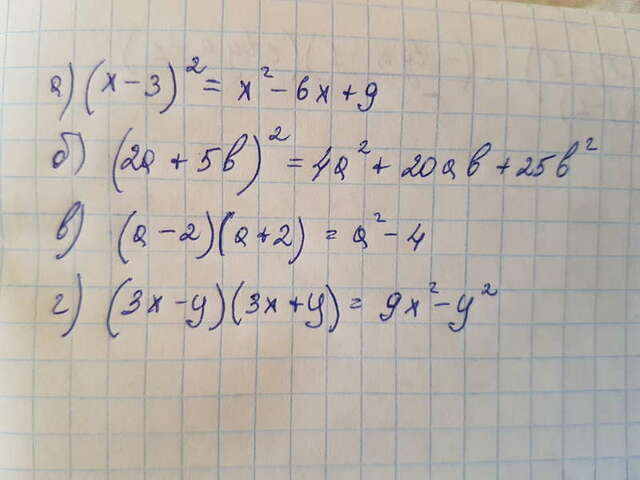 а) (x-3)² = x²-6x+9
б) (2a+5b)² = 4a²+20ab+25b²
в) (a-2)(a+2) = a²-4
г) (3x-y)(3x+y) = 9x²-y²